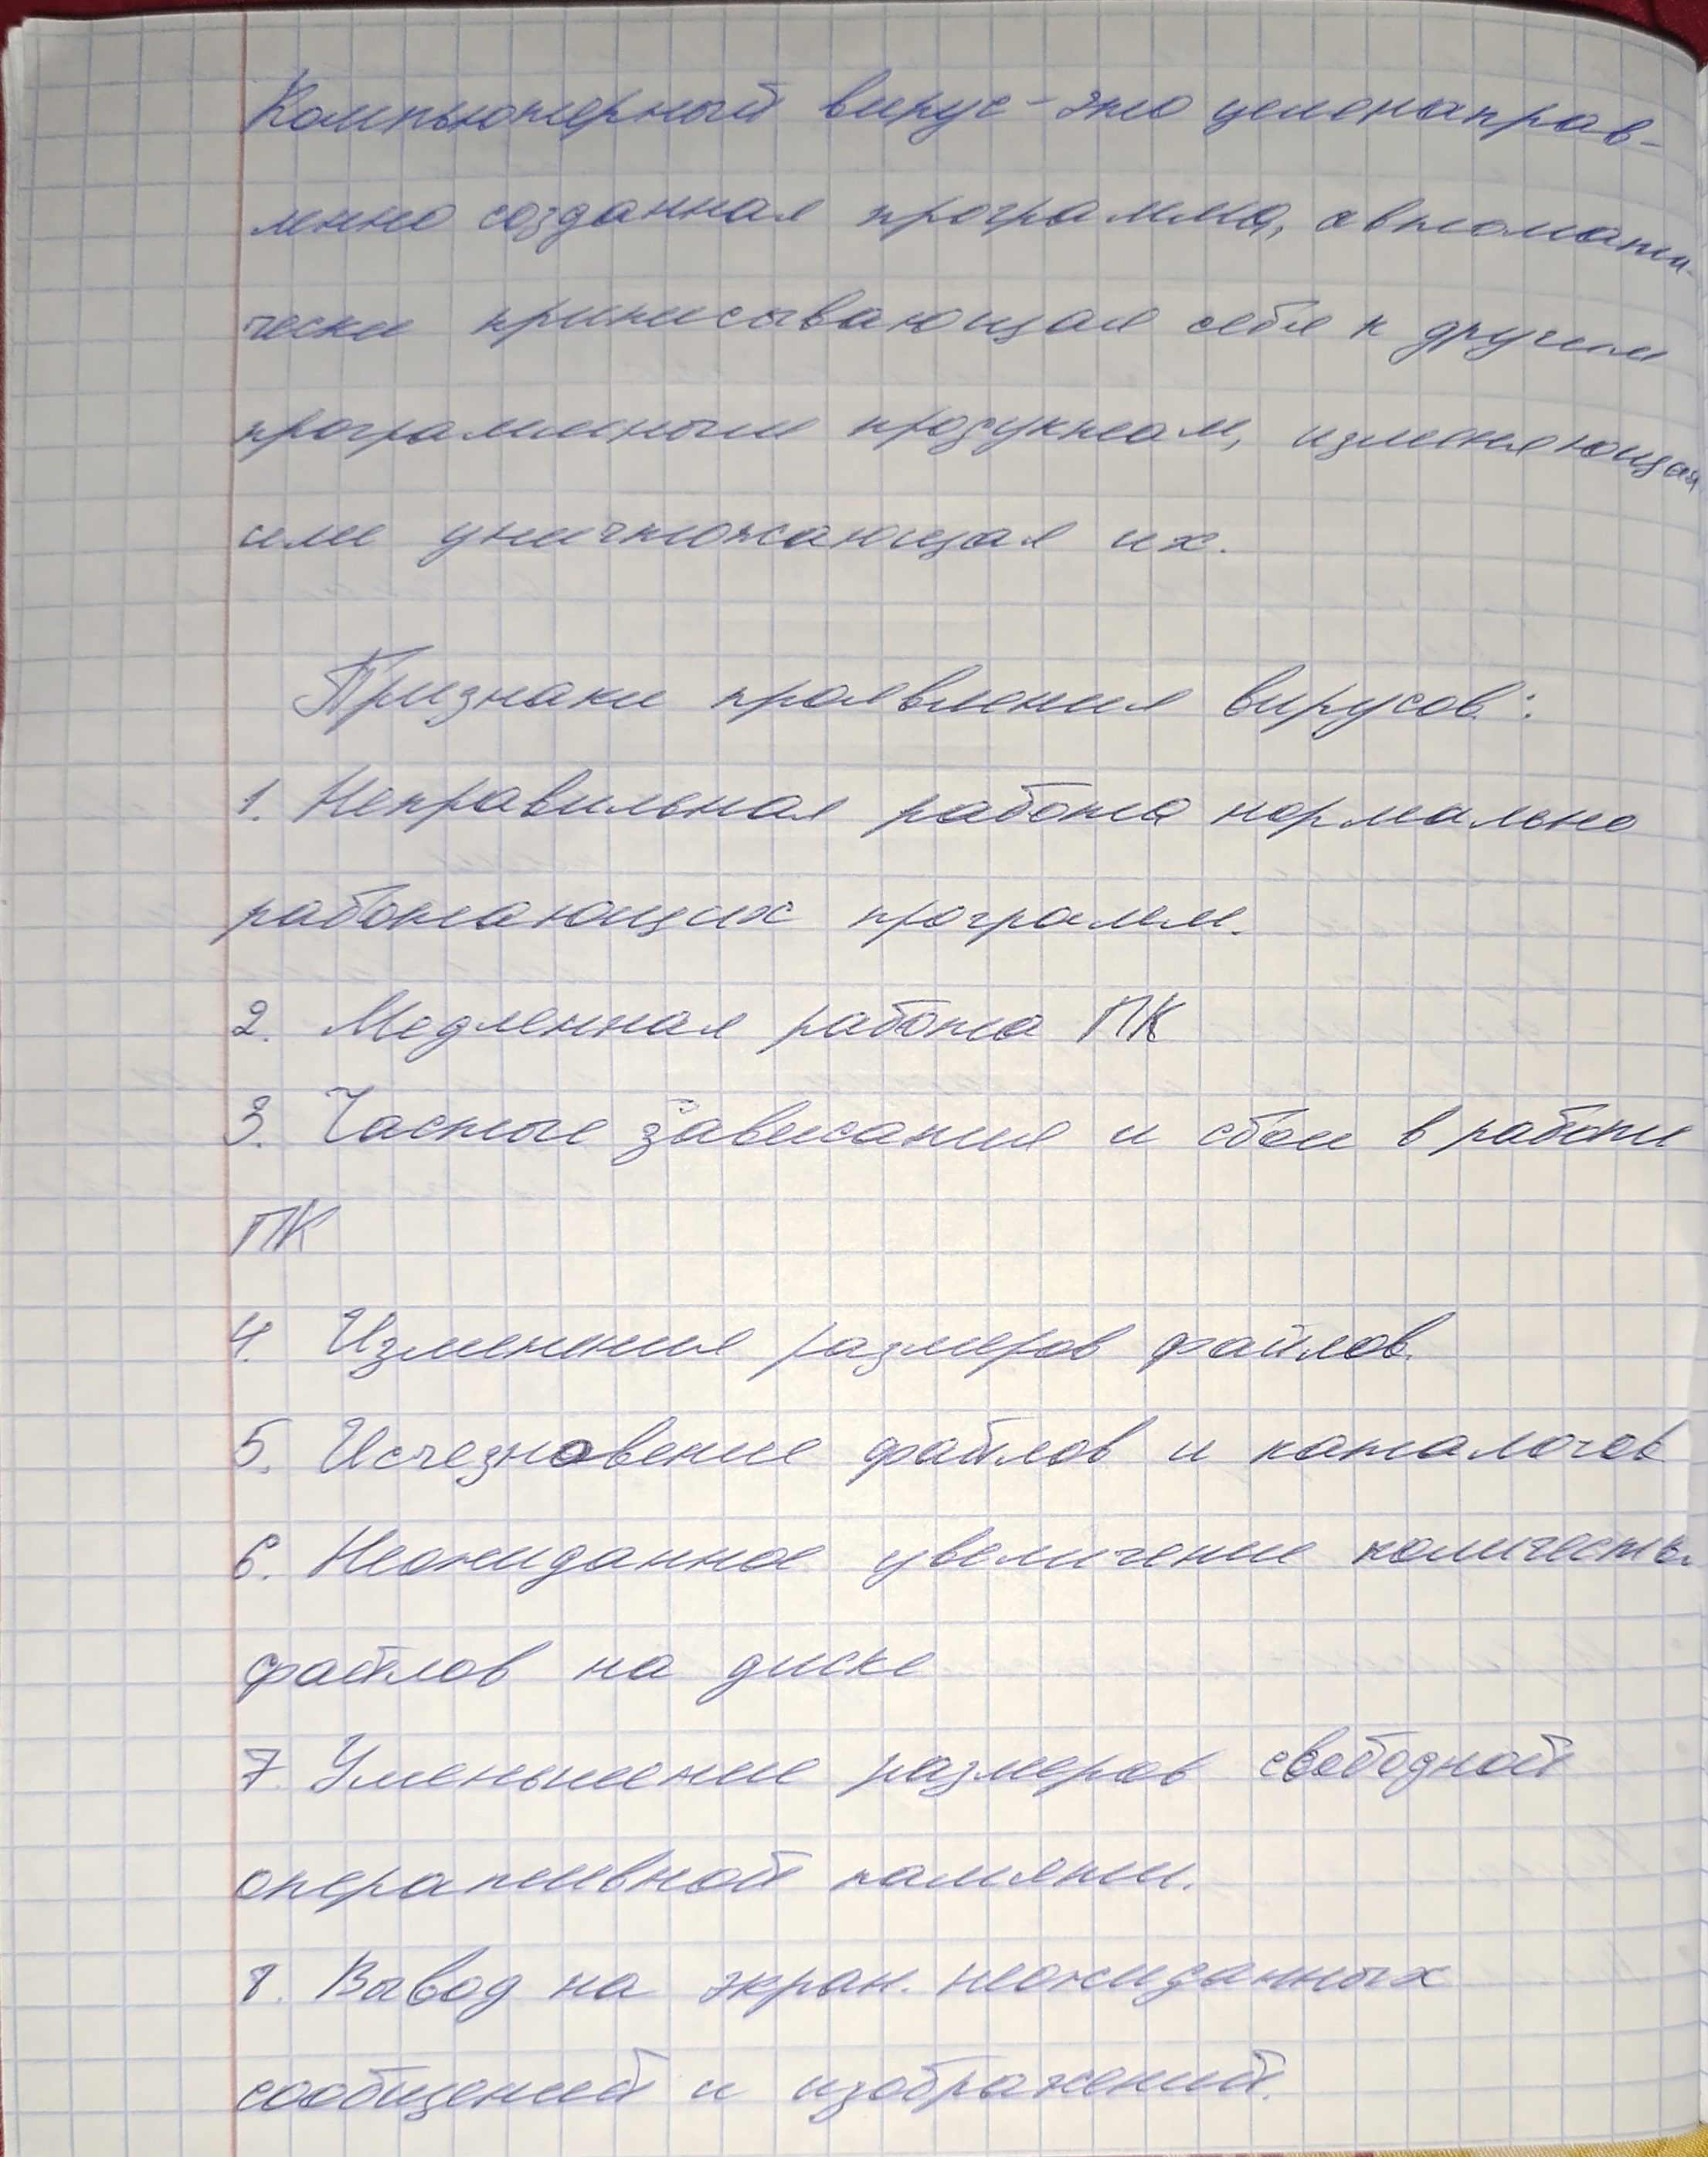 Компьютерный вирус - это целенаправ-
ленно созданная программа, автомати-
чески приписывающая себя к другим
программным продуктам, изменяющая
или уничтожающая их.
Признаки проявления вирусов:
1. Неправильная работа нормально
работающих программ.
2. Медленная работа ПК
3. Частые зависания и сбои в работе
ПК
4. Изменения размеров файлов.
5. Исчезновение файлов и каталогов
6. Неожиданное увеличение количества
файлов на диске
7. Уменьшение размеров свободной
оперативной памяти.
8. Вывод на экран. неожиданных
сообщений и изображений.